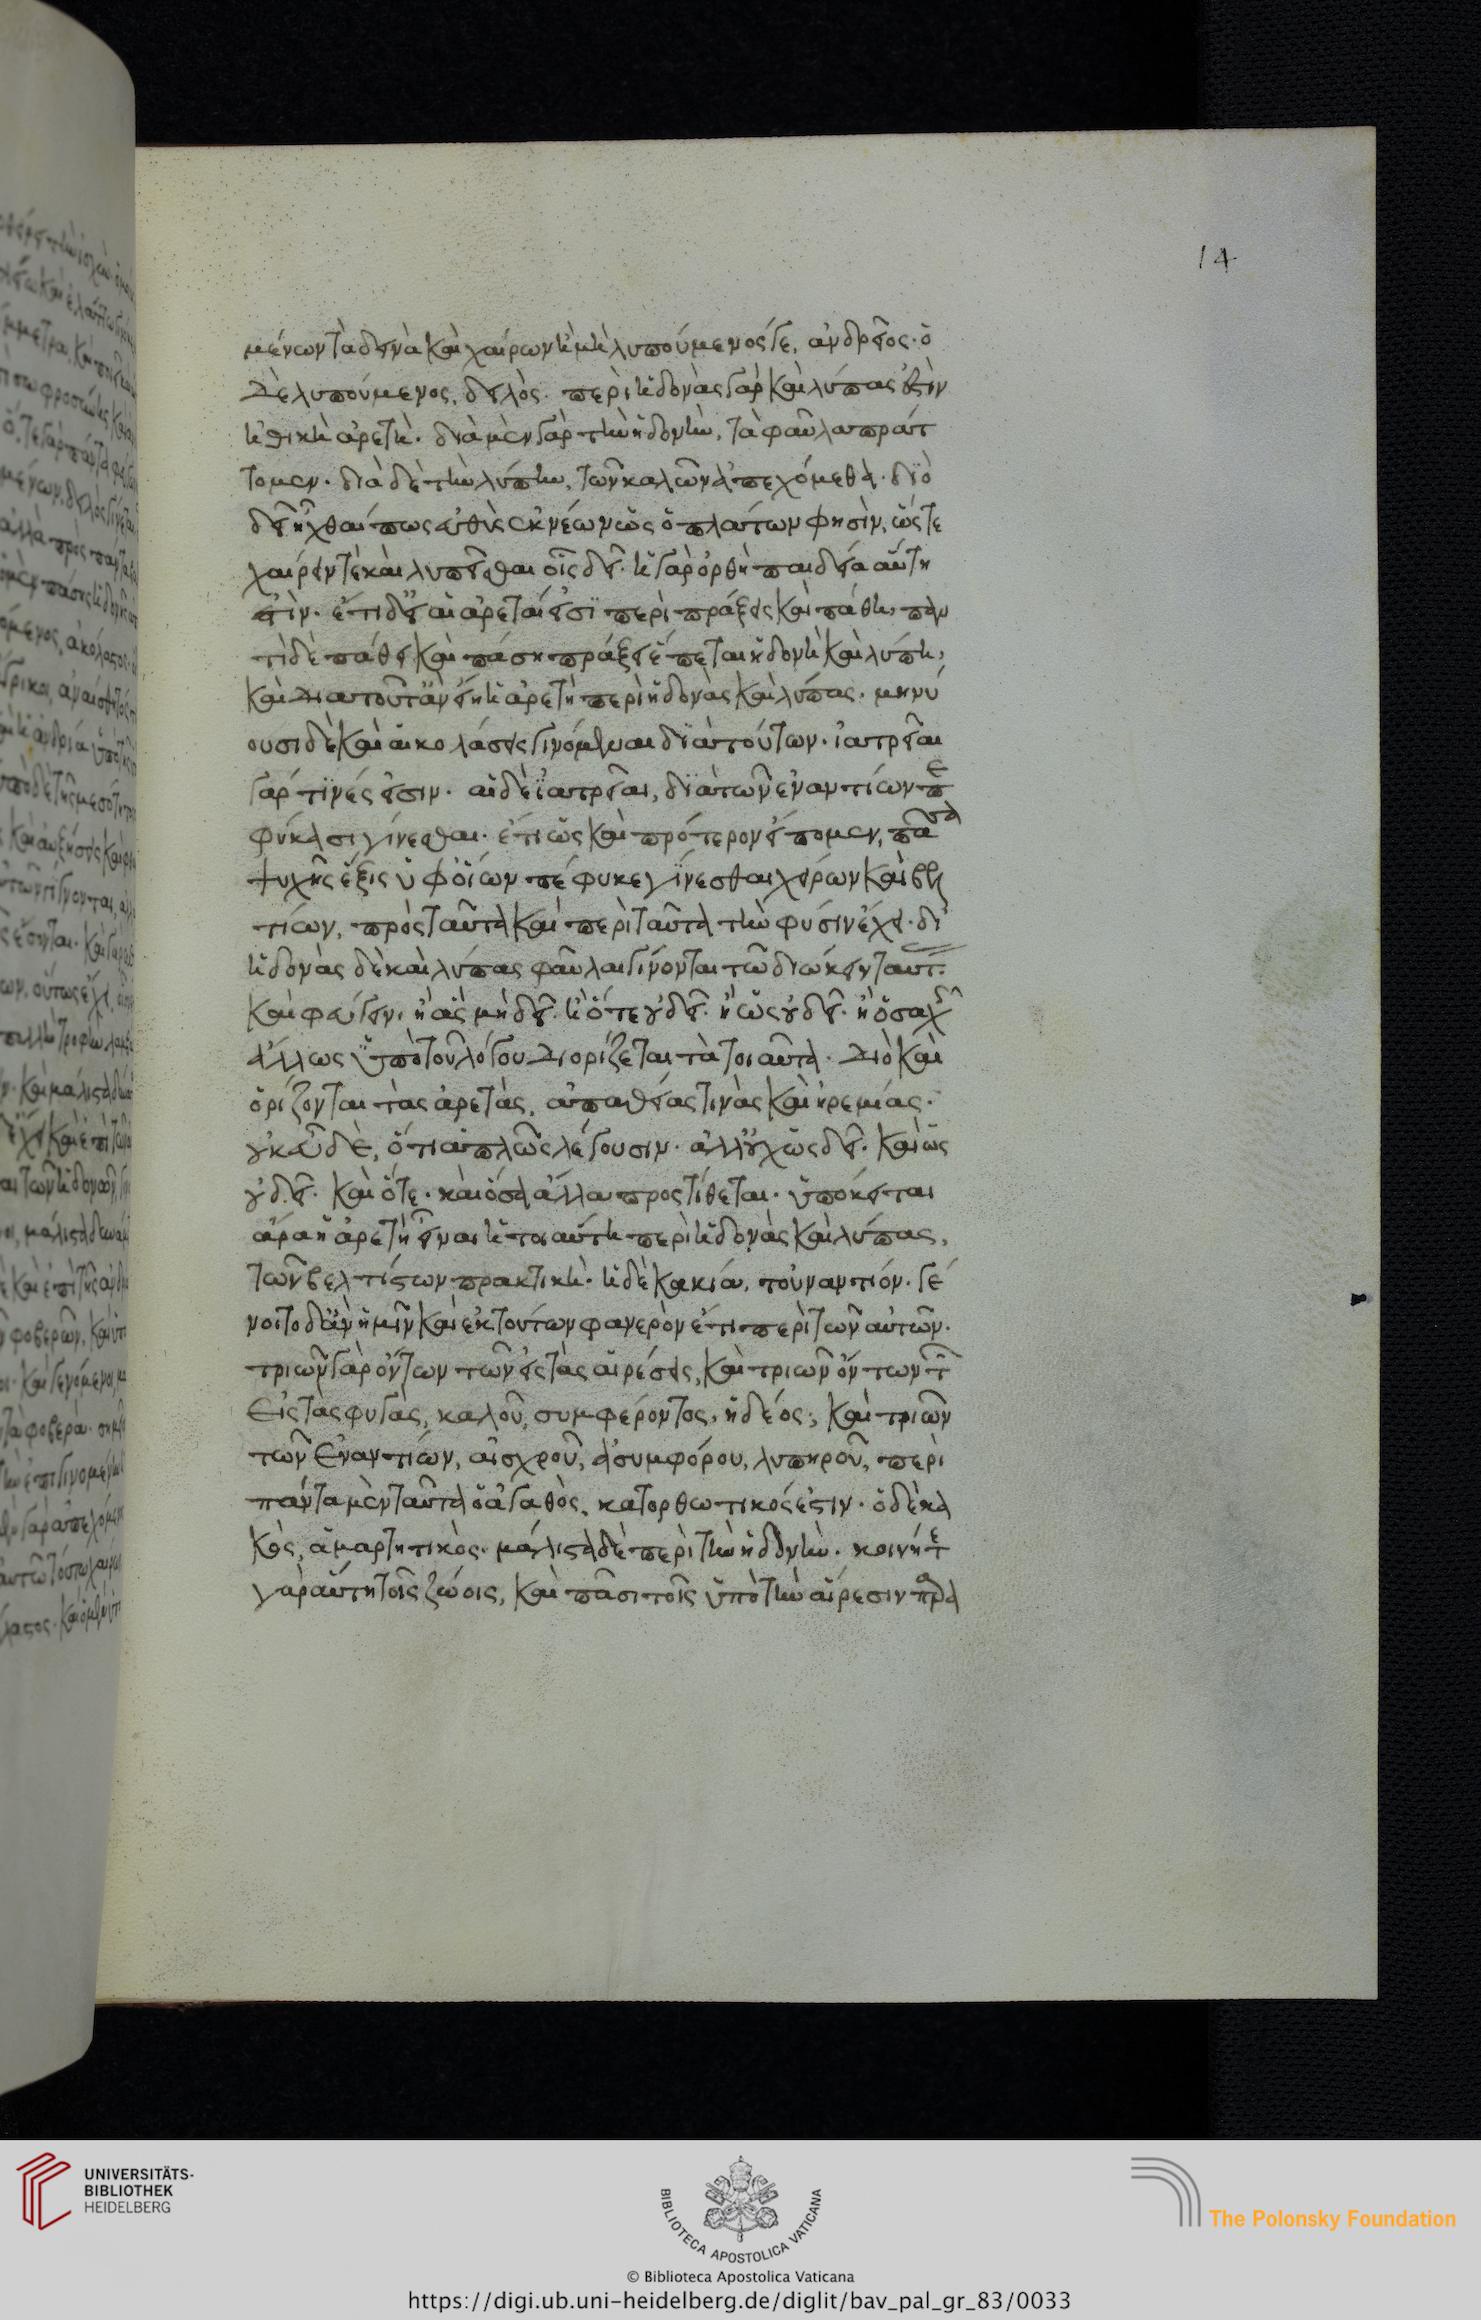 14
μένων τὰ δεινὰ καὶ χαίρων ἢ μὴ λυπούμενός γε, ἀνδρεῖος· ὁ
δὲ λυπούμενος, δειλός· περὶ ἡδονὰς γὰρ καὶ λύπας ἐστὶν
ἡ ἠθικὴ ἀρετή· διὰ μὲν γὰρ τὴν ἡδονὴν, τὰ φαῦλα πράτ
τομεν· διὰ δὲ τὴν λύπην, τῶν καλῶν ἀπεχόμεθα· διὸ
δεῖ ἦχθαί πως εὐθὺς ἐκ νέων ὡς ὁ πλάτων φησὶν, ὥστε
χαίρειν τὲ καὶ λυπεῖσθαι οἷς δεῖ· ἡ γὰρ ὀρθὴ παιδεία αὕτη
ἐστὶν· ἔτι δ' εἰ αἱ ἀρεταί εἰσὶ περὶ πράξεις καὶ πάθη, παν
τὶ δὲ πάθει καὶ πάσῃ πράξει ἕπεται ἡδονὴ καὶ λύπη,
καὶ διὰ τοῦτ' ἂν εἴη ἡ ἀρετὴ περὶ ἡδονὰς καὶ λύπας· μηνύ
ουσι δὲ καὶ αἱ κολάσεις γινόμεναι διὰ τούτων· ἰατρεῖαι
γάρ τινές εἰσιν· αἱ δὲ ἰατρεῖαι, διὰ τῶν ἐναντίων πε
φύκασι γίνεσθαι· ἔτι ὡς καὶ πρότερον εἴπομεν, πᾶσα
ψυχῆς ἕξις ὑφ' οἵων πέφυκε γίνεσθαι χείρων καὶ βελ
τίων, πρὸς ταῦτα καὶ περὶ ταῦτα τὴν φύσιν ἔχει· δι'
ἡδονὰς δὲ καὶ λύπας φαῦλαι γίνονται τῷ διώκειν ταύτας
καὶ φεύγειν, ἢ ἃς μὴ δεῖ· ἢ ὅτε οὐ δεῖ· ἢ ὡς οὐ δεῖ· ἢ ὁσαχῶς
ἄλλως ὑπὸ τοῦ λόγου διορίζεται τὰ τοιαῦτα· διὸ καὶ
ὁρίζονται τὰς ἀρετὰς, ἀπαθείας τινὰς καὶ ἠρεμίας·
οὐκ εὖ δὲ, ὅτι ἁπλῶς λέγουσιν· ἀλλ' οὐχ ὡς δεῖ· καὶ ὡς
οὐ δεῖ· καὶ ὅτε· καὶ ὅσα ἄλλα προστίθεται· ὑπόκειται
ἄρα ἡ ἀρετὴ εἶναι ἡ τοιαύτη περὶ ἡδονὰς καὶ λύπας,
τῶν βελτίστων πρακτική· ἡ δὲ κακία, τοὐναντίον· γέ
νοιτο δ' ἂν ἡμῖν καὶ ἐκ τούτων φανερὸν ἔτι περὶ τῶν αὐτῶν·
τριῶν γὰρ ὄντων τῶν εἰς τὰς αἱρέσεις, καὶ τριῶν ὄντων τῶν
εἰς τὰς φυγάς, καλοῦ, συμφέροντος, ἡδέος, καὶ τριῶν
τῶν ἐναντίων, αἰσχροῦ, ἀσυμφόρου, λυπηροῦ, περὶ
πάντα μὲν ταῦτα ὁ ἀγαθὸς, κατορθωτικός ἐστιν· ὁ δὲ κα
κὸς, ἁμαρτητικὸς· μάλιστα δὲ περὶ τὴν ἡδονὴν· κοινή τε
γὰρ αὕτη τοῖς ζώοις, καὶ πᾶσι τοῖς ὑπὸ τὴν αἵρεσιν παρα
UNIVERSITÄTS-
BIBLIOTHEK
HEIDELBERG
BIBLIOTECA APOSTOLICA VATICANA
The Polonsky Foundation
© Biblioteca Apostolica Vaticana
https://digi.ub.uni-heidelberg.de/diglit/bav_pal_gr_83/0033